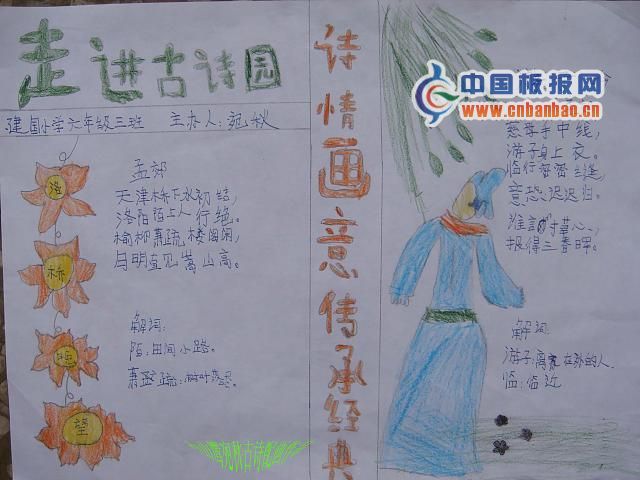 走进古诗园
建国小学六年级三班 主办人:宛秋
洛
桥
晚
望
孟郊
天津桥下水初结,
洛阳陌上人行绝。
榆柳萧疏楼阁闲,
月明直见嵩山高。
解词:
陌:田间小路。
萧疏:树叶落尽。
诗情画意传承经典
中国板报网
www.cnbanbao.cn
慈母手中线,
游子身上衣。
临行密密缝,
意恐迟迟归。
谁言寸草心,
报得三春晖。
解词:
游子:离家在外的人。
临:临近